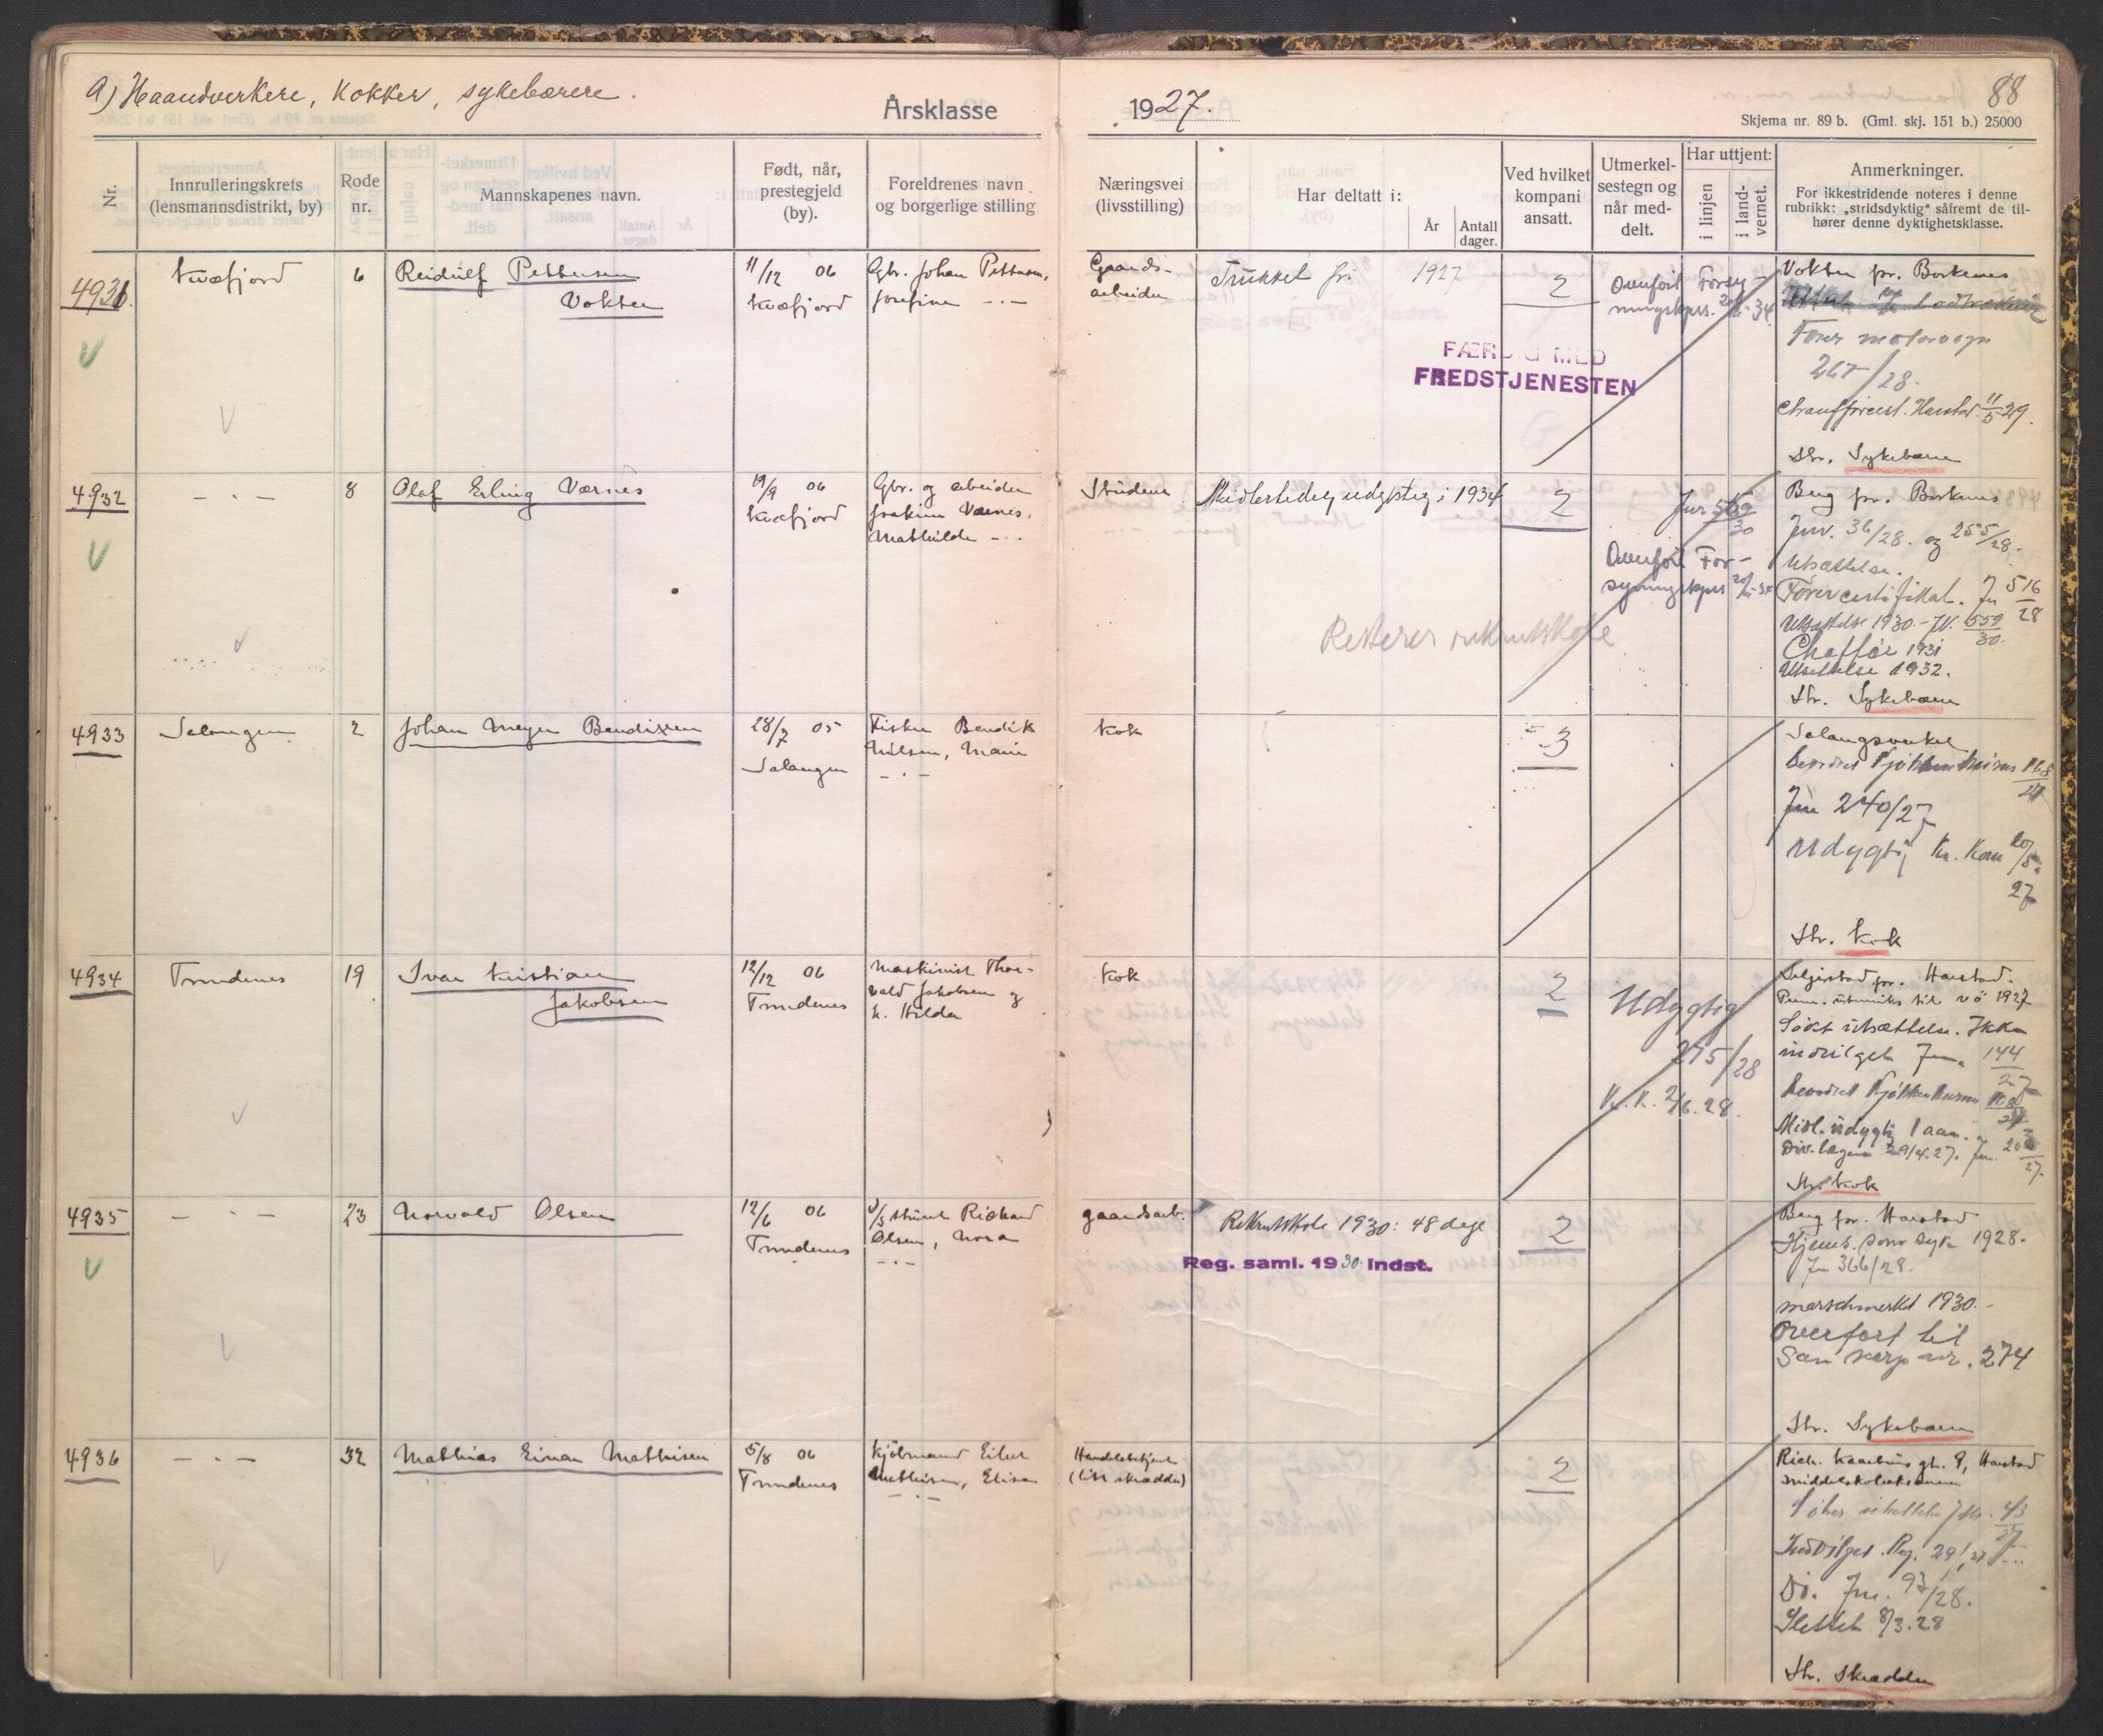 a) Haandverkere, Kokker, sykebærere.
Årsklasse
1927.
88
Skjema nr. 89 b. (Gml. skj. 151 b.) 25000
Nr.
Innrulleringskrets
(lensmannsdistrikt, by)
Rode
nr.
Mannskapenes navn.
Født, når,
prestegjeld
(by).
Foreldrenes navn
og borgerlige stilling
Næringsvei
(livsstilling)
Har deltatt i:
År
Antall
dager.
Ved hvilket
kompani
ansatt.
Utmerkel-
sestegn og
når med-
delt.
Har uttjent:
i linjen
i land-
vernet.
Anmerkninger.
For ikkestridende noteres i denne
rubrikk: „stridsdyktig“ såfremt de til-
hører denne dyktighetsklasse.
4931.
Kvæfjord
6
Reidulf Pettersen
Vokter
11/12 06
Kvæfjord
Gbr. Johan Pettersen,
Josefine -.-
Gaards-
arbeider
Trukket fri 1927
FÆRDIG MED
FREDSTJENESTEN
2
Overført Forsy-
ningskps.
Vokter pr. Borkenes
Fører motorvogn
267/28.
Chaufførcert. Harstad 11/5 29.
Str. Sykebærer
4932
- . -
8
Olaf Erling Værnes
19/9 06
Kvæfjord
Gbr. og arbeider
Joakim Værnes,
Mathilde - . -
Student
Midlertidig udygtig i 1934
Resterer rekrutskole
2
Overført For-
syningskps
Berg pr. Borkenes
Jnr. 36/28. og 255/28.
Utsættelse.
Førercertifikat. Jn 516/28
Utsættelse 1930.- JN. 559/30.
Chaffør 1931
Utsettelse 1932.
Str. Sykebærer
4933
Salangen
2
Johan Meyer Bendixsen
28/7 05
Salangen
Fisker Bendik
Nilsen, Marie
- . -
Kok
3
Salangsverket
Jnr 240/27
Udygtig Kr. Kom 20/5.
27
Str. Kok
4934
Trondenes
19
Ivar Kristian
Jakobsen
12/12 06
Trondenes
Maskinist Thor-
vald Jakobsen og
h. Hilda
Kok
2
Udygtig
275/28
K. K. 2/6. 28.
Seljestad pr. Harstad.
Søkt utsættelse. Ikke
indvilget Jnr. 144/27
Midl. udygtig 1 aar.
Div.lægen 29/4.27.
Str. Kok
4935
- . -
23
Norvald Olsen
12/6 06
Trondenes
Richard
Olsen, Nora
- . -
gaardsarb.
Rekrutskole 1930: 48 dage
Reg. saml. 1930 indst.
2
Berg pr. Harstad
Hjems. som syk 1928.
Jn 366/28.
marschmerket 1930.-
Overført til
San komp nr. 274
Str. Sykebærer
4936
- . -
32
Mathias Einar Mathisen
5/8 06
Trondenes
Kjøbmand Eilert
Mathisen, Elisa
- . -
Handelsbetjent
(litt skrædder)
2
Rich. Kaarbøs gt. 9, Harstad
middelskoleeksamen
Indvilget. Reg.
Do. Jnr. 93/28.
Slettet 8/3.28
Str. Skrædder